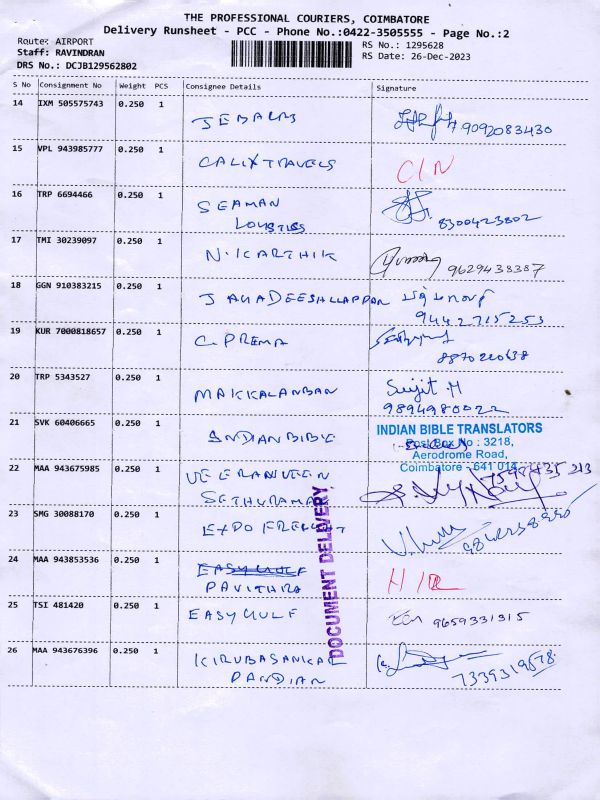 THE PROFESSIONAL COURIERS, COIMBATORE
Delivery Runsheet - PCC - Phone No.:0422-3505555 - Page No.:2
Route: AIRPORT
Staff: RAVINDRAN
DRS No.: DCJB129562802
RS No.: 1295628
RS Date: 26-Dec-2023
S No Consignment No Weight PCS Consignee Details Signature
14 IXM 505575743 0.250 1
9092083430
15 VPL 943985777 0.250 1 CALIX TRAVELS C/N
16 TRP 6694466 0.250 1 SEAMAN
8300423802
17 TMI 30239097 0.250 1 N.KARTHIK
9629438387
18 GGN 910383215 0.250 1
9442715253
19 KUR 7000818657 0.250 1 C PREMA
8870220638
20 TRP 5343527 0.250 1 MAKKALANBAN Sujit M
9894980022
21 SVK 60406665 0.250 1 INDIAN BIBLE
INDIAN BIBLE TRANSLATORS
Post Box No : 3218,
Aerodrome Road,
Coimbatore - 641 014
22 MAA 943675985 0.250 1
SETHURAMAN
23 SMG 30088170 0.250 1 EXPO FREIGHT
24 MAA 943853536 0.250 1 EASYGULF
PAVITHRA
25 TSI 481420 0.250 1 EASYGULF 9659331315
26 MAA 943676396 0.250 1 KIRUBASANKAR
PANDIAN
7339319578
DOCUMENT DELIVERY